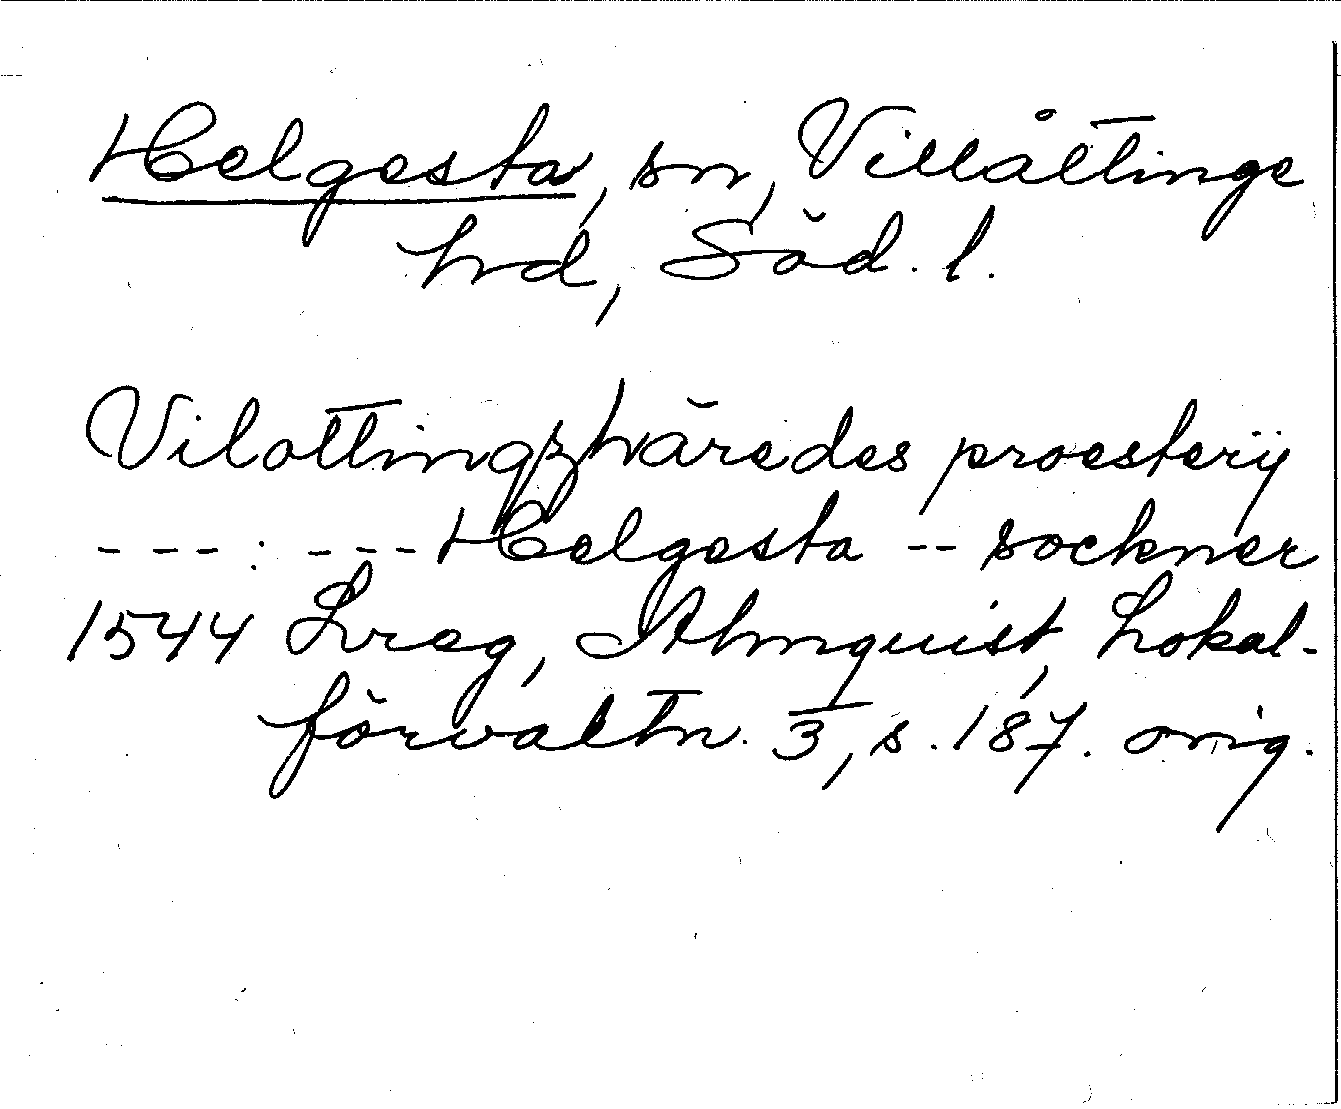 Helgesta, sn, Villåttinge
hd, Söd. l.
Vilottingzhäredes proesterij
- - - : - - - Helgesta -- sockner
1544 Lreg, Almquist, Lokal-
förvaltn. 3, s. 187. orig.